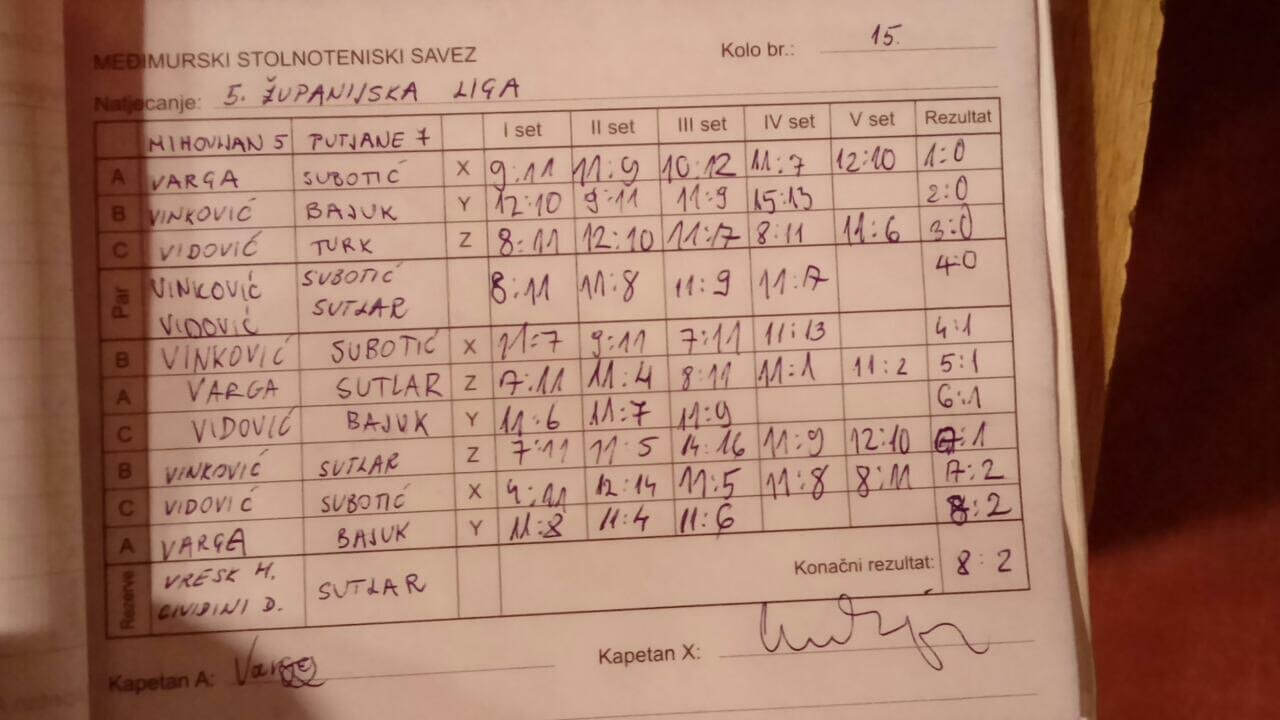 MEĐIMURSKI STOLNOTENISKI SAVEZ Kolo br.: 15.
Natjecanje: 5. ŽUPANIJSKA LIGA
MIHOVLJAN 5 PUTJANE 7 I set II set III set IV set V set Rezultat
A VARGA SUBOTIĆ X 9:11 11:9 10:12 11:7 12:10 1:0
B VINKOVIĆ BAJUK Y 12:10 9:11 11:9 15:13 2:0
C VIDOVIĆ TURK Z 8:11 12:10 11:7 8:11 11:6 3:0
Par VINKOVIĆ SUBOTIĆ 8:11 11:8 11:9 11:7 4:0
VIDOVIĆ SUTLAR
B VINKOVIĆ SUBOTIĆ X 11:7 9:11 7:11 11:13 4:1
A VARGA SUTLAR Z 7:11 11:4 8:11 11:1 11:2 5:1
C VIDOVIĆ BAJUK Y 11:6 11:7 11:9 6:1
B VINKOVIĆ SUTLAR Z 7:11 11:5 14:16 11:9 12:10 7:1
C VIDOVIĆ SUBOTIĆ X 4:11 12:14 11:5 11:8 8:11 7:2
A VARGA BAJUK Y 11:8 11:4 11:6 8:2
Rezerve VRESK H. SUTLAR Konačni rezultat: 8:2
CIVIDINI D.
Kapetan A: Varga Kapetan X: